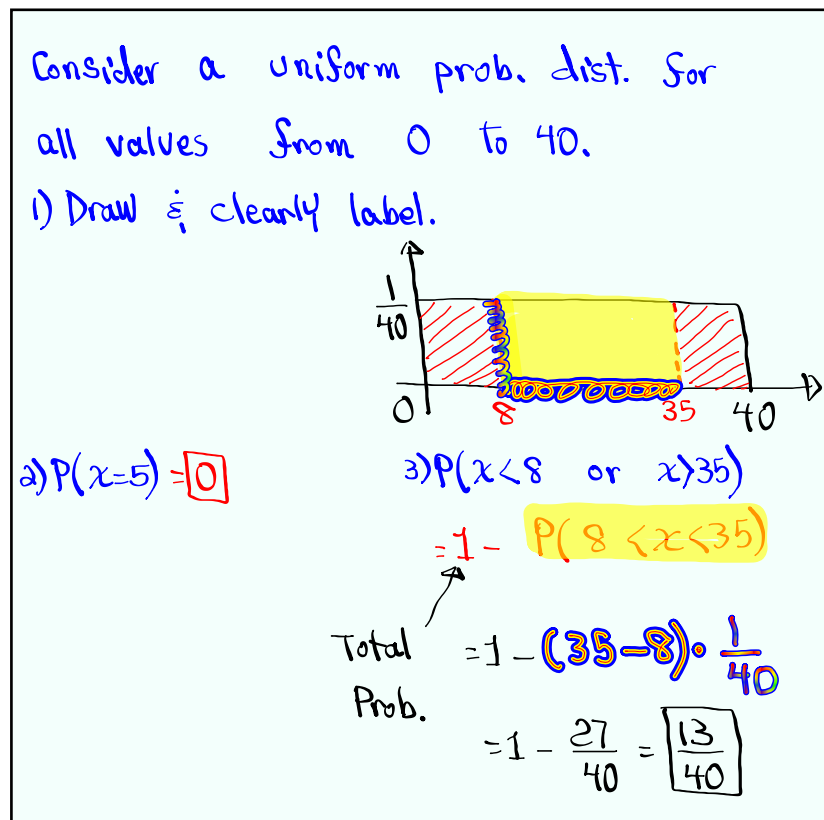 Consider a uniform prob. dist. for
all values from 0 to 40.
1) Draw & clearly label.
1/40
0 8 35 40
2) P(x=5) = 0
3) P(x<8 or x>35)
= 1 - P(8 <x<35)
Total Prob.
= 1 - (35-8) · 1/40
= 1 - 27/40 = 13/40